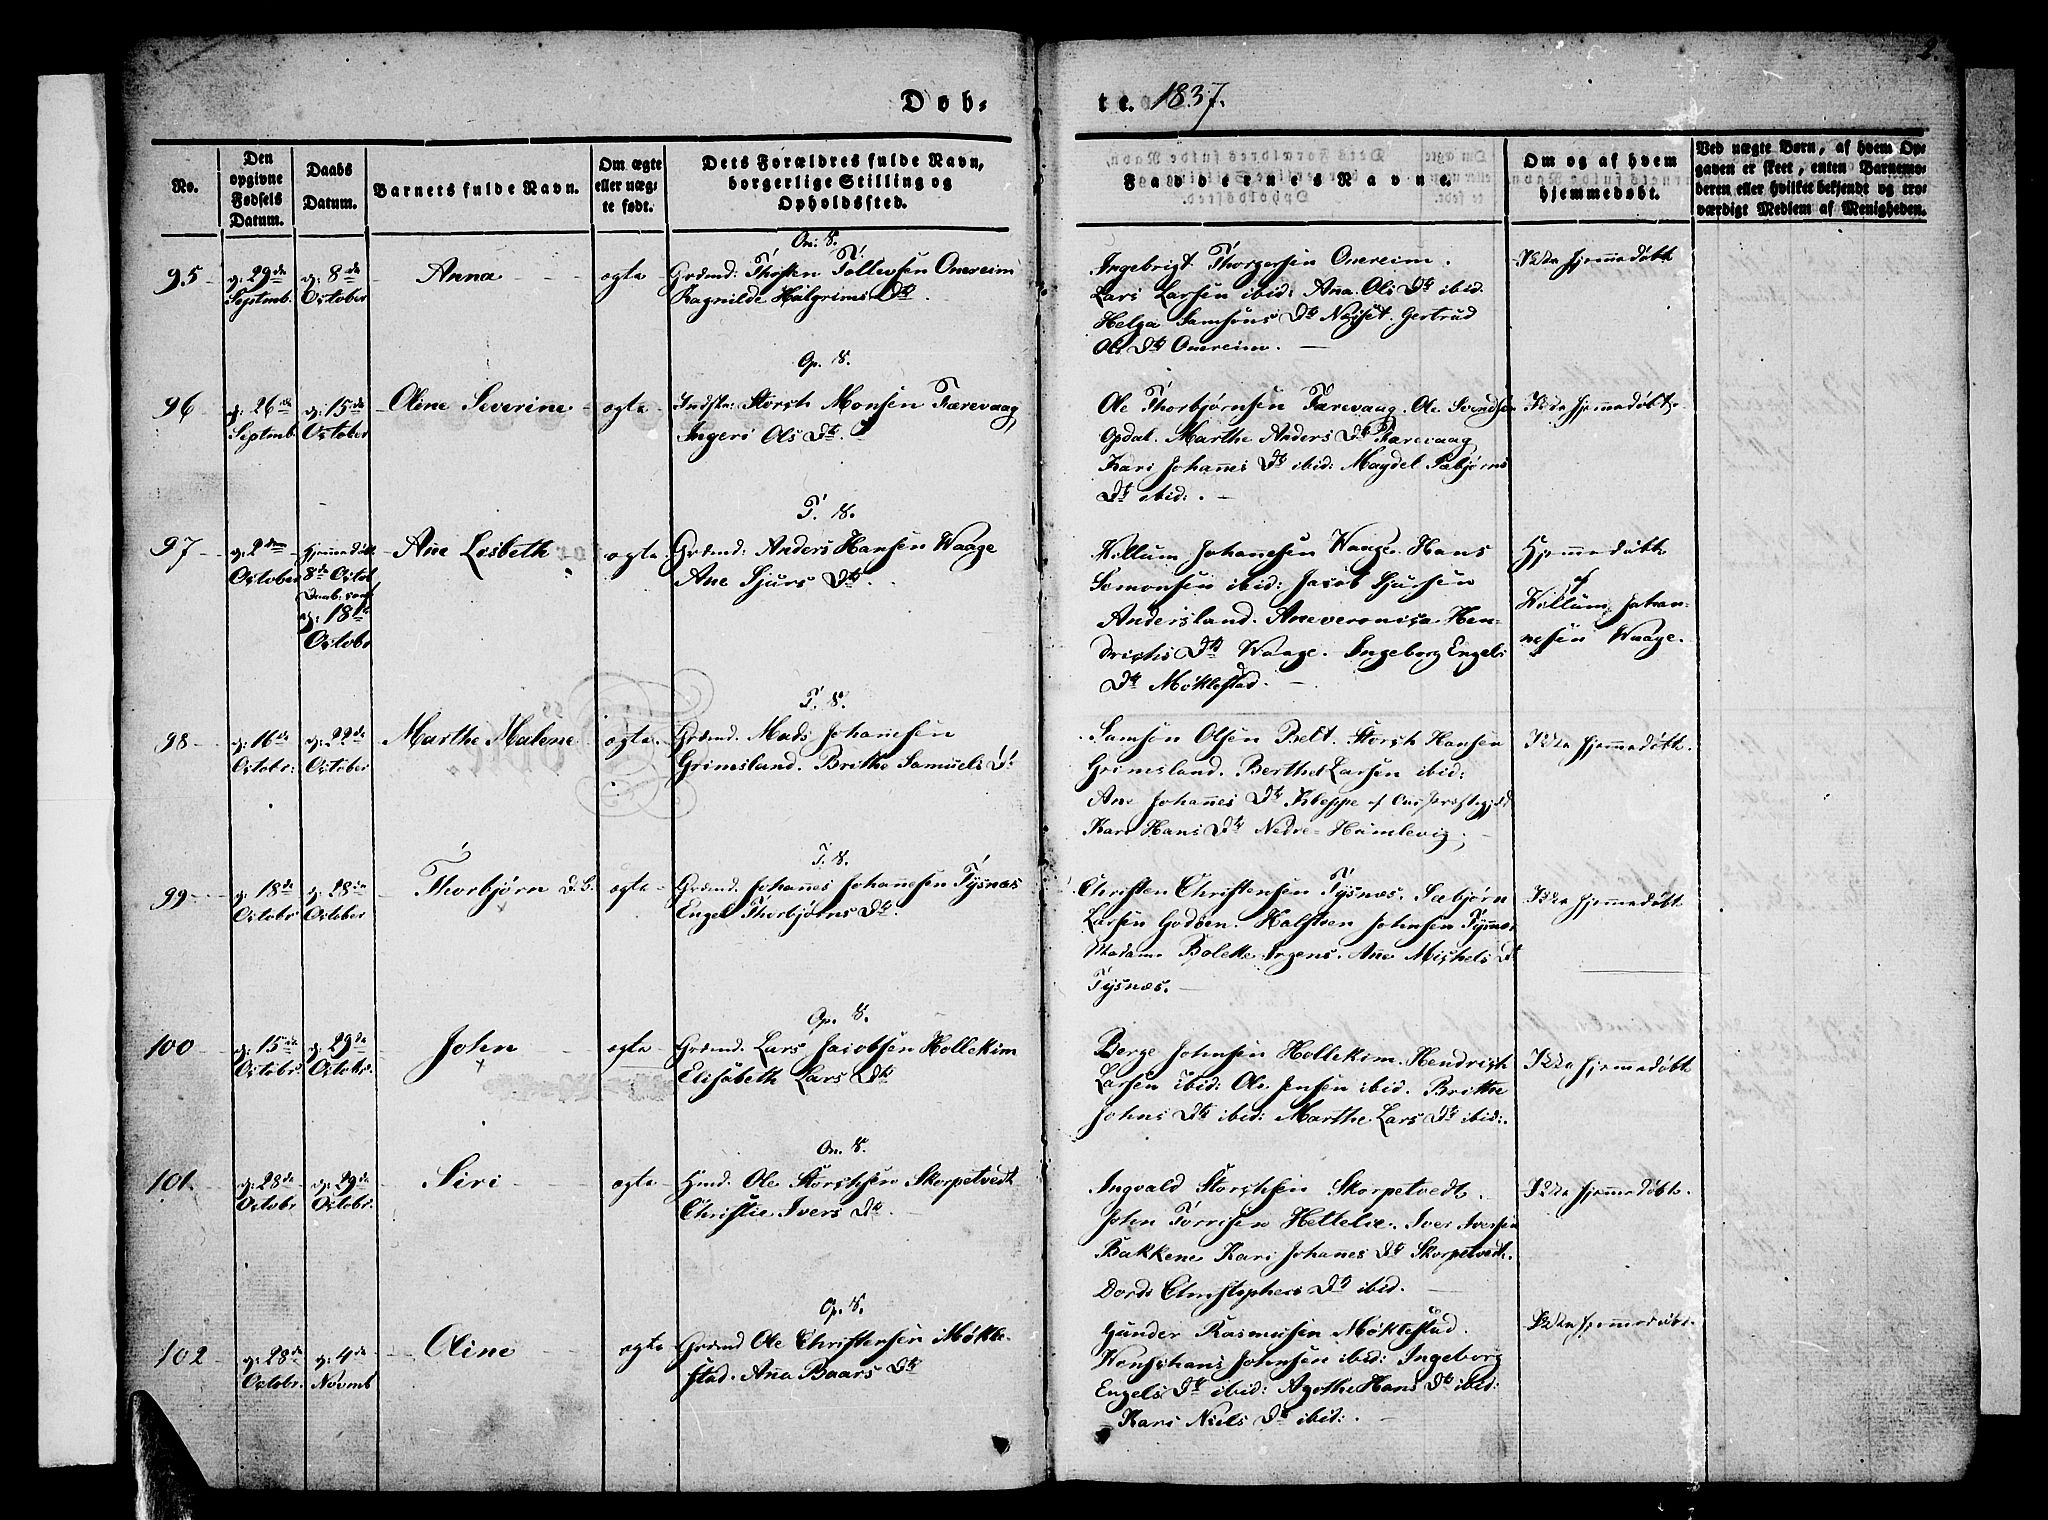 2.
Døb-
te. 1837.
No.
Den
opgivne
Fødsels
Datum.
Daabs
Datum.
Barnets fulde Navn.
Om ægte
eller uæg-
te født.
Dets Forældres fulde Navn,
borgerlige Stilling og
Opholdssted.
Faddernes Navne.
Om og af hvem
hjemmedøbt.
Ved uægte Børn, af hvem Op-
gaven er skeet, enten Barnemo-
deren eller hvilket bekjendt og tro-
værdigt Medlem af Menigheden.
On: S.
95
d: 29de
Septmb.
d: 8de
October
Anna
ægte
Grdmd: Thosten Tollevsen Onereim
Ragnilde Halgrims Dtr.
Ingebrigt Thorgersen Onereim.
Lars Larsen ibid: Ana Ols Dtr ibid.
Helga Samsons Dtr Gertrud
Ols Dtr Onereim.
Ikke hjemmedøbt
Op. S.
96
d: 26de
Septmb.
d: 15de
October
Oline Severine
ægte
Indste: Storch Monsen Færevaag
Ingeri Ols Dtr.
Ole Thorbjørnsen Færevaag. Ole Svendsen
Opdal. Marthe Anders Dtr Færevaag
Kari Johannes Dtr ibid: Magdel Sæbjørns
Dtr ibid:.
Ikke hjemmedøbt
T. S.
97
d: 2den
October
hjemmedøbt
8de Octob,
d: 18de
Octobr
Ane Lisbeth
ægte
Grdmd: Anders Hansen Waage
Ane Sjurs Dtr.
Willum Johanesen Waage. Hans
Semonsen ibid: Jacob Sjursen
Andersland. Aneveronica Hen-
drichs Dtr Waage. Ingeborg Engels
Dtr Møklestad.
Hjemmedøbt
af
Willum Johan-
nesen Waage.
T. S.
98
d: 16de
Octobr:
d: 22de
October
Marthe Malene
ægte
Grdmd. Mads Johanesen
Grimsland. Brithe Samuels Dr
Samsen Olsen Belt. Storch Hansen
Grimsland. Berthel Larsen ibid:
Ane Johannes Dtr Kleppe af
Kari Hans Dtr Nedre-Humlevig;
Ikke hjemmedøbt.
T. S.
99
d: 18de
Octobr
d: 28de
October
Thorbjørn D.S.
ægte
Grdmd. Johannes Johannesen Tysnæs
Engel Thorbjørns Dtr.
Christen Christensen Tysnæs. Sæbjørn
Larsen Godøen. Halsteen Johnsen Tysnæs
Madam Bolette Irgens. Ane Michels Dtr
Tysnæs.
Ikke hjemmedøbt
Op. S.
100
d: 15de
Octobr.
d: 29de
Octobr.
John
ægte
Grdmd. Lars Jacobsen Hollekim
Elisabeth Lars Dtr
Børge Johnsen Hollekim. Hendrich
Larsen ibid: Ole Jensen ibid. Brithe
Johns Dtr ibid: Marthe Lars Dtr ibid:.
Ikke hjemmedøbt
On. S.
101.
d: 28de
Octobr
d: 29de
Octobr.
Siri
ægte
Hmd. Ole Storchsen Skorpetvedt
Christie Ivers Dtr.
Ingvald Storchsen Skorpetvedt.
John Torrisen Hettelie. Iver Iversen
Bakkene Kari Johanes Dtr Skorpetvedt.
Dorde Christophers Dtr ibid.
Ikke hjemmedøbt.
Op. S.
102
d: 28de
Octobr.
d: 4de
Novmb
Oline
ægte
Grdmd Ole Christensen Møkle-
stad. Ana Baars Dtr
Gunder Rasmusen Møklestad.
Johnsen ibid: Ingeborg
Engels Dtr ibid: Agothe Hans Dtr ibid:
Kari Niels Dtr ibid:.
Ikke hjemmedøbt.